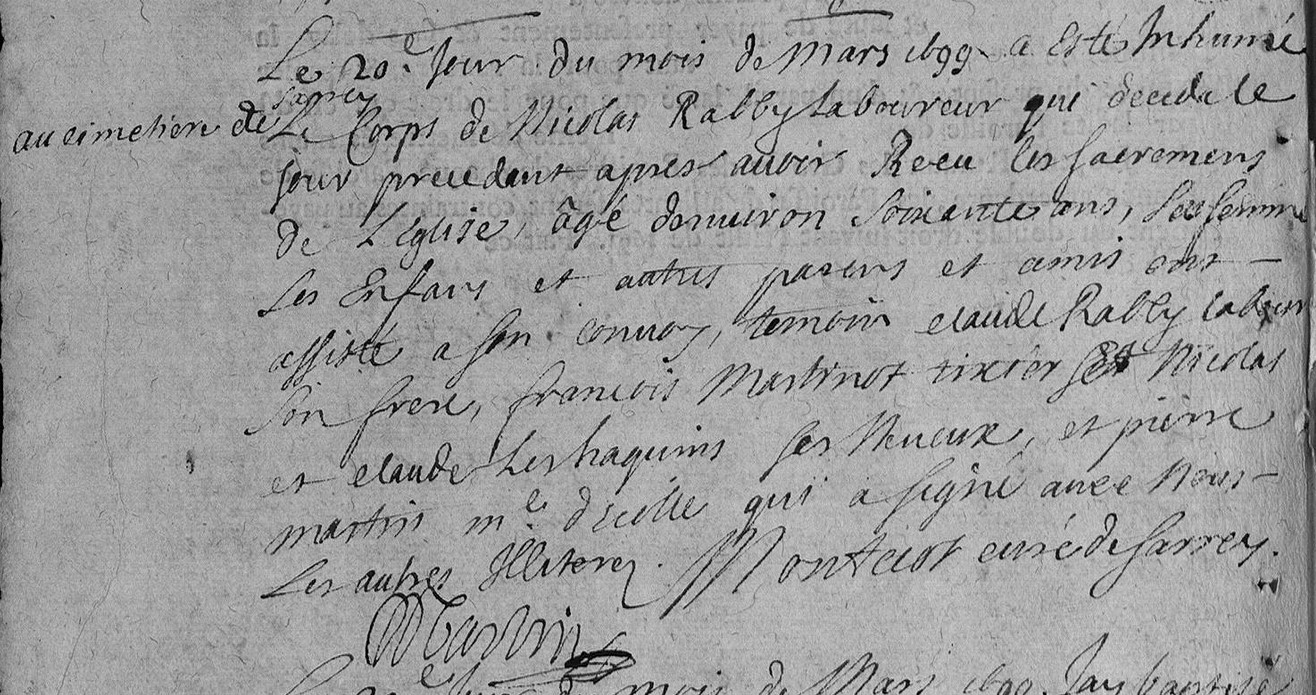 Le 20.e Jour du mois de Mars 1699 a Esté Inhumé
au cimetiere de Sarrey Le Corps de Nicolas Rabby Laboureur qui deceda le
jour precedant apres avoir Receu les sacremens
de L'Eglise, âgé denuiron soixante ans, sa femme
Les Enfans et autres parens et amis ont
assisté a son convoy, temoin claude Rabby labour
son frere, françois Martinot tixier Nicolas
et claude Les haquins ses Neueux, et pierre
martin m.e décolle qui a signé avec Nous
Les autres Illiterez. Monteciot curé de Sarrey.
Martin
mois de Mars 1699. Jay baptisé